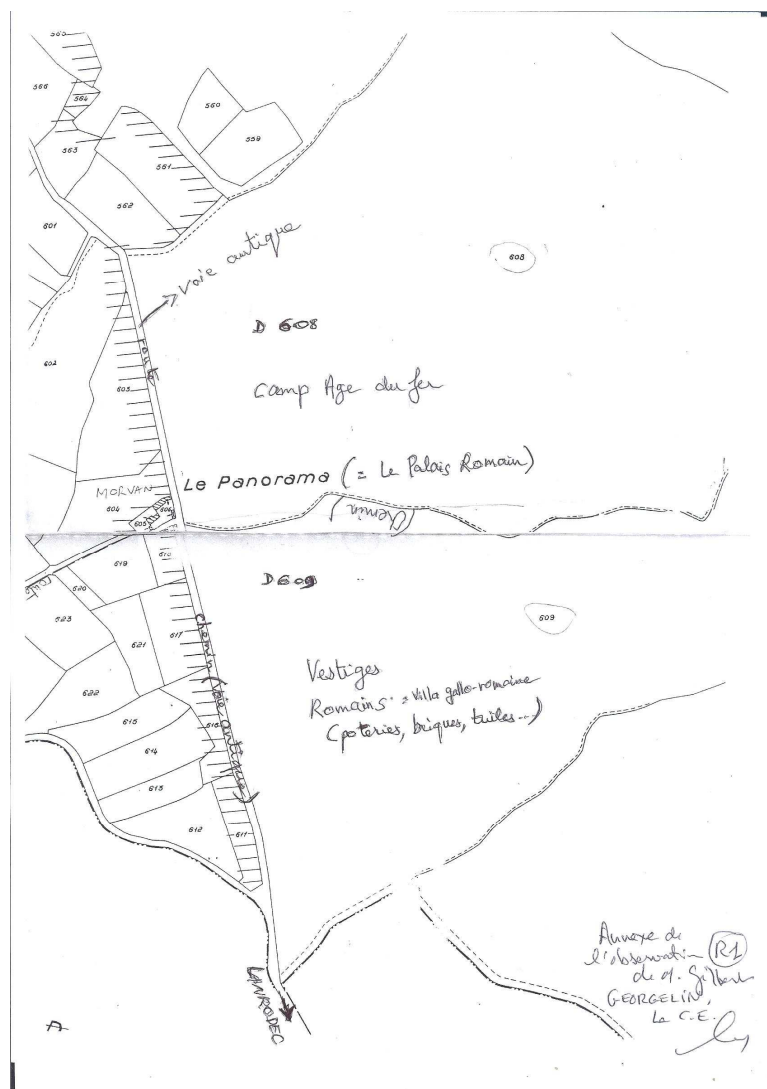 565
566
564
560
559
563
561
562
601
Voie antique
608
D 608
602
Route
603
Camp Age du fer
MORVAN
Le Panorama (= Le Palais Romain)
604
606
605
(chemin)
619
610
D 609
620
Route
623
609
621
617
chemin (voie antique)
Vestiges
622
Romains = Villa gallo-romaine
(poteries, briques, tuiles...)
615
616
614
613
612
611
Annexe de
l'observation R1
de M. Gilbert
GEORGELIN,
Le C.E.
LANRODEC
A